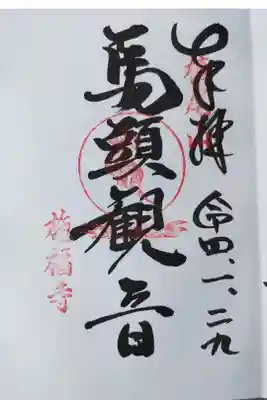 奉拝
令四、一、二九
馬頭観音
施福寺